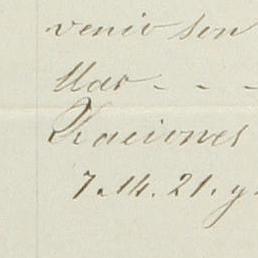 venio son
Mar - - -
Raciones
7. 14. 21. y